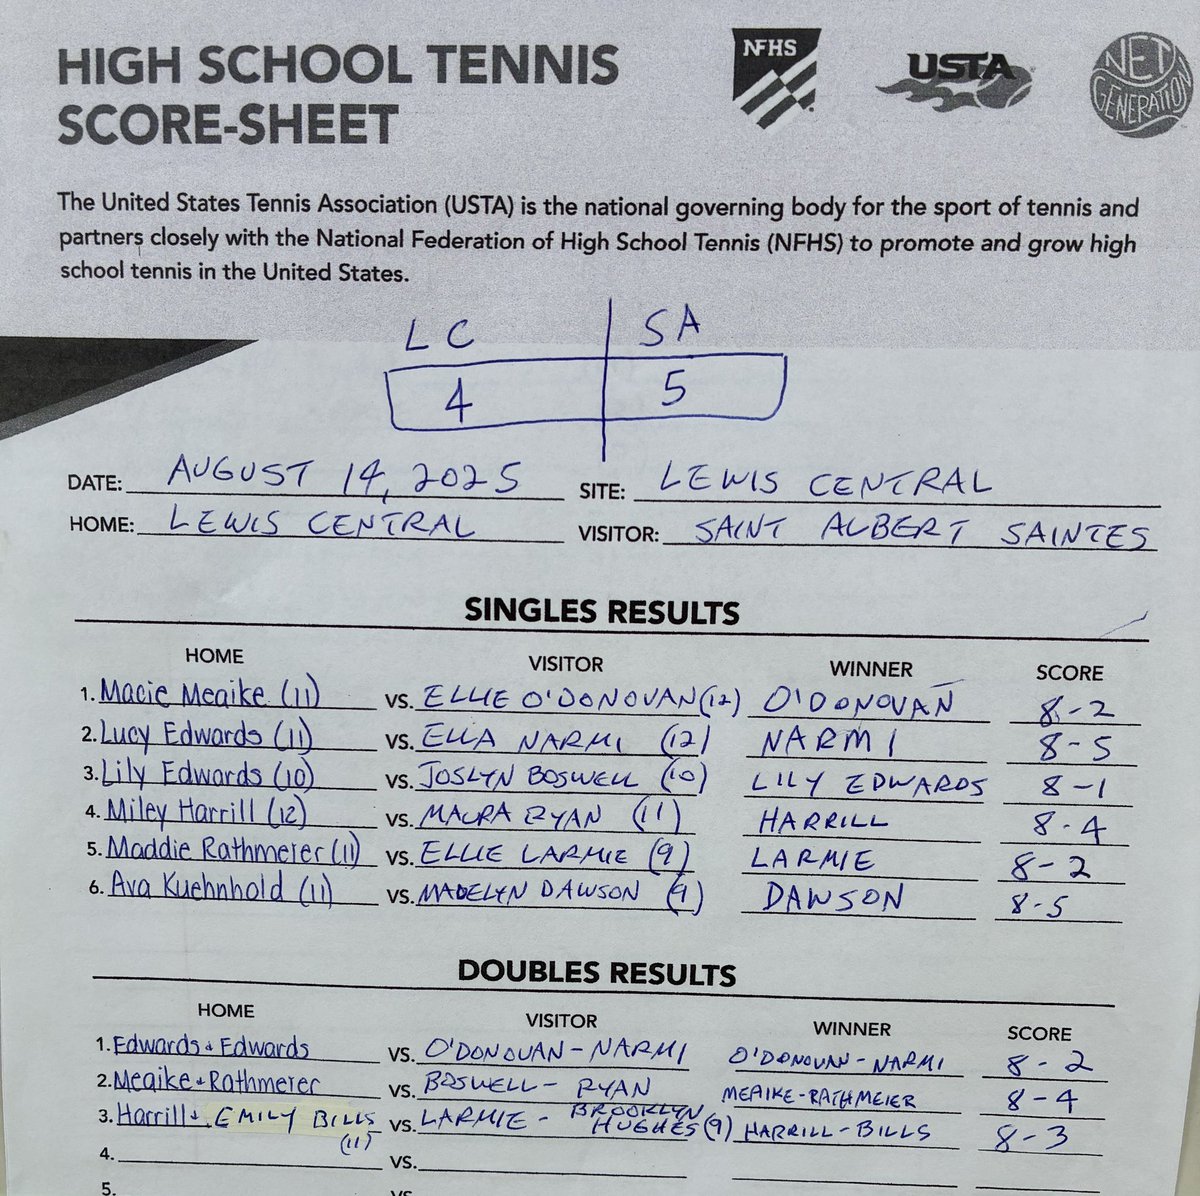 HIGH SCHOOL TENNIS
SCORE-SHEET
NFHS
USTA
NET
GENERATION
The United States Tennis Association (USTA) is the national governing body for the sport of tennis and
partners closely with the National Federation of High School Tennis (NFHS) to promote and grow high
school tennis in the United States.
LC SA
4 5
DATE: AUGUST 14, 2025 SITE: LEWIS CENTRAL
HOME: LEWIS CENTRAL VISITOR: SAINT ALBERT SAINTES
SINGLES RESULTS
HOME VISITOR WINNER SCORE
1. Macie Meaike (11) VS. ELLIE O'DONOVAN (12) O'DONOVAN 8-2
2. Lucy Edwards (11) VS. ELLA NARMI (12) NARMI 8-5
3. Lily Edwards (10) VS. JOSLYN BOSWELL (10) LILY EDWARDS 8-1
4. Miley Harrill (12) VS. MAURA RYAN (11) HARRILL 8-4
5. Maddie Rathmeier (11) VS. ELLIE LARMIE (9) LARMIE 8-2
6. Ava Kuehnhold (11) VS. MADELYN DAWSON (9) DAWSON 8-5
DOUBLES RESULTS
HOME VISITOR WINNER SCORE
1. Edwards + Edwards VS. O'DONOVAN-NARMI O'DONOVAN-NARMI 8-2
2. Meaike + Rathmeier VS. BOSWELL-RYAN MEAIKE-RATHMEIER 8-4
3. Harrill + EMILY BILLS (11) VS. LARMIE - BROOKLYN HUGHES (9) HARRILL-BILLS 8-3
4. VS.
5. VS.